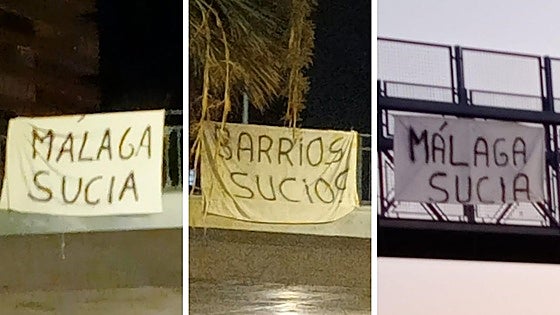 MÁLAGA
SUCIA
BARRIOS
SUCIOS
MÁLAGA
SUCIA